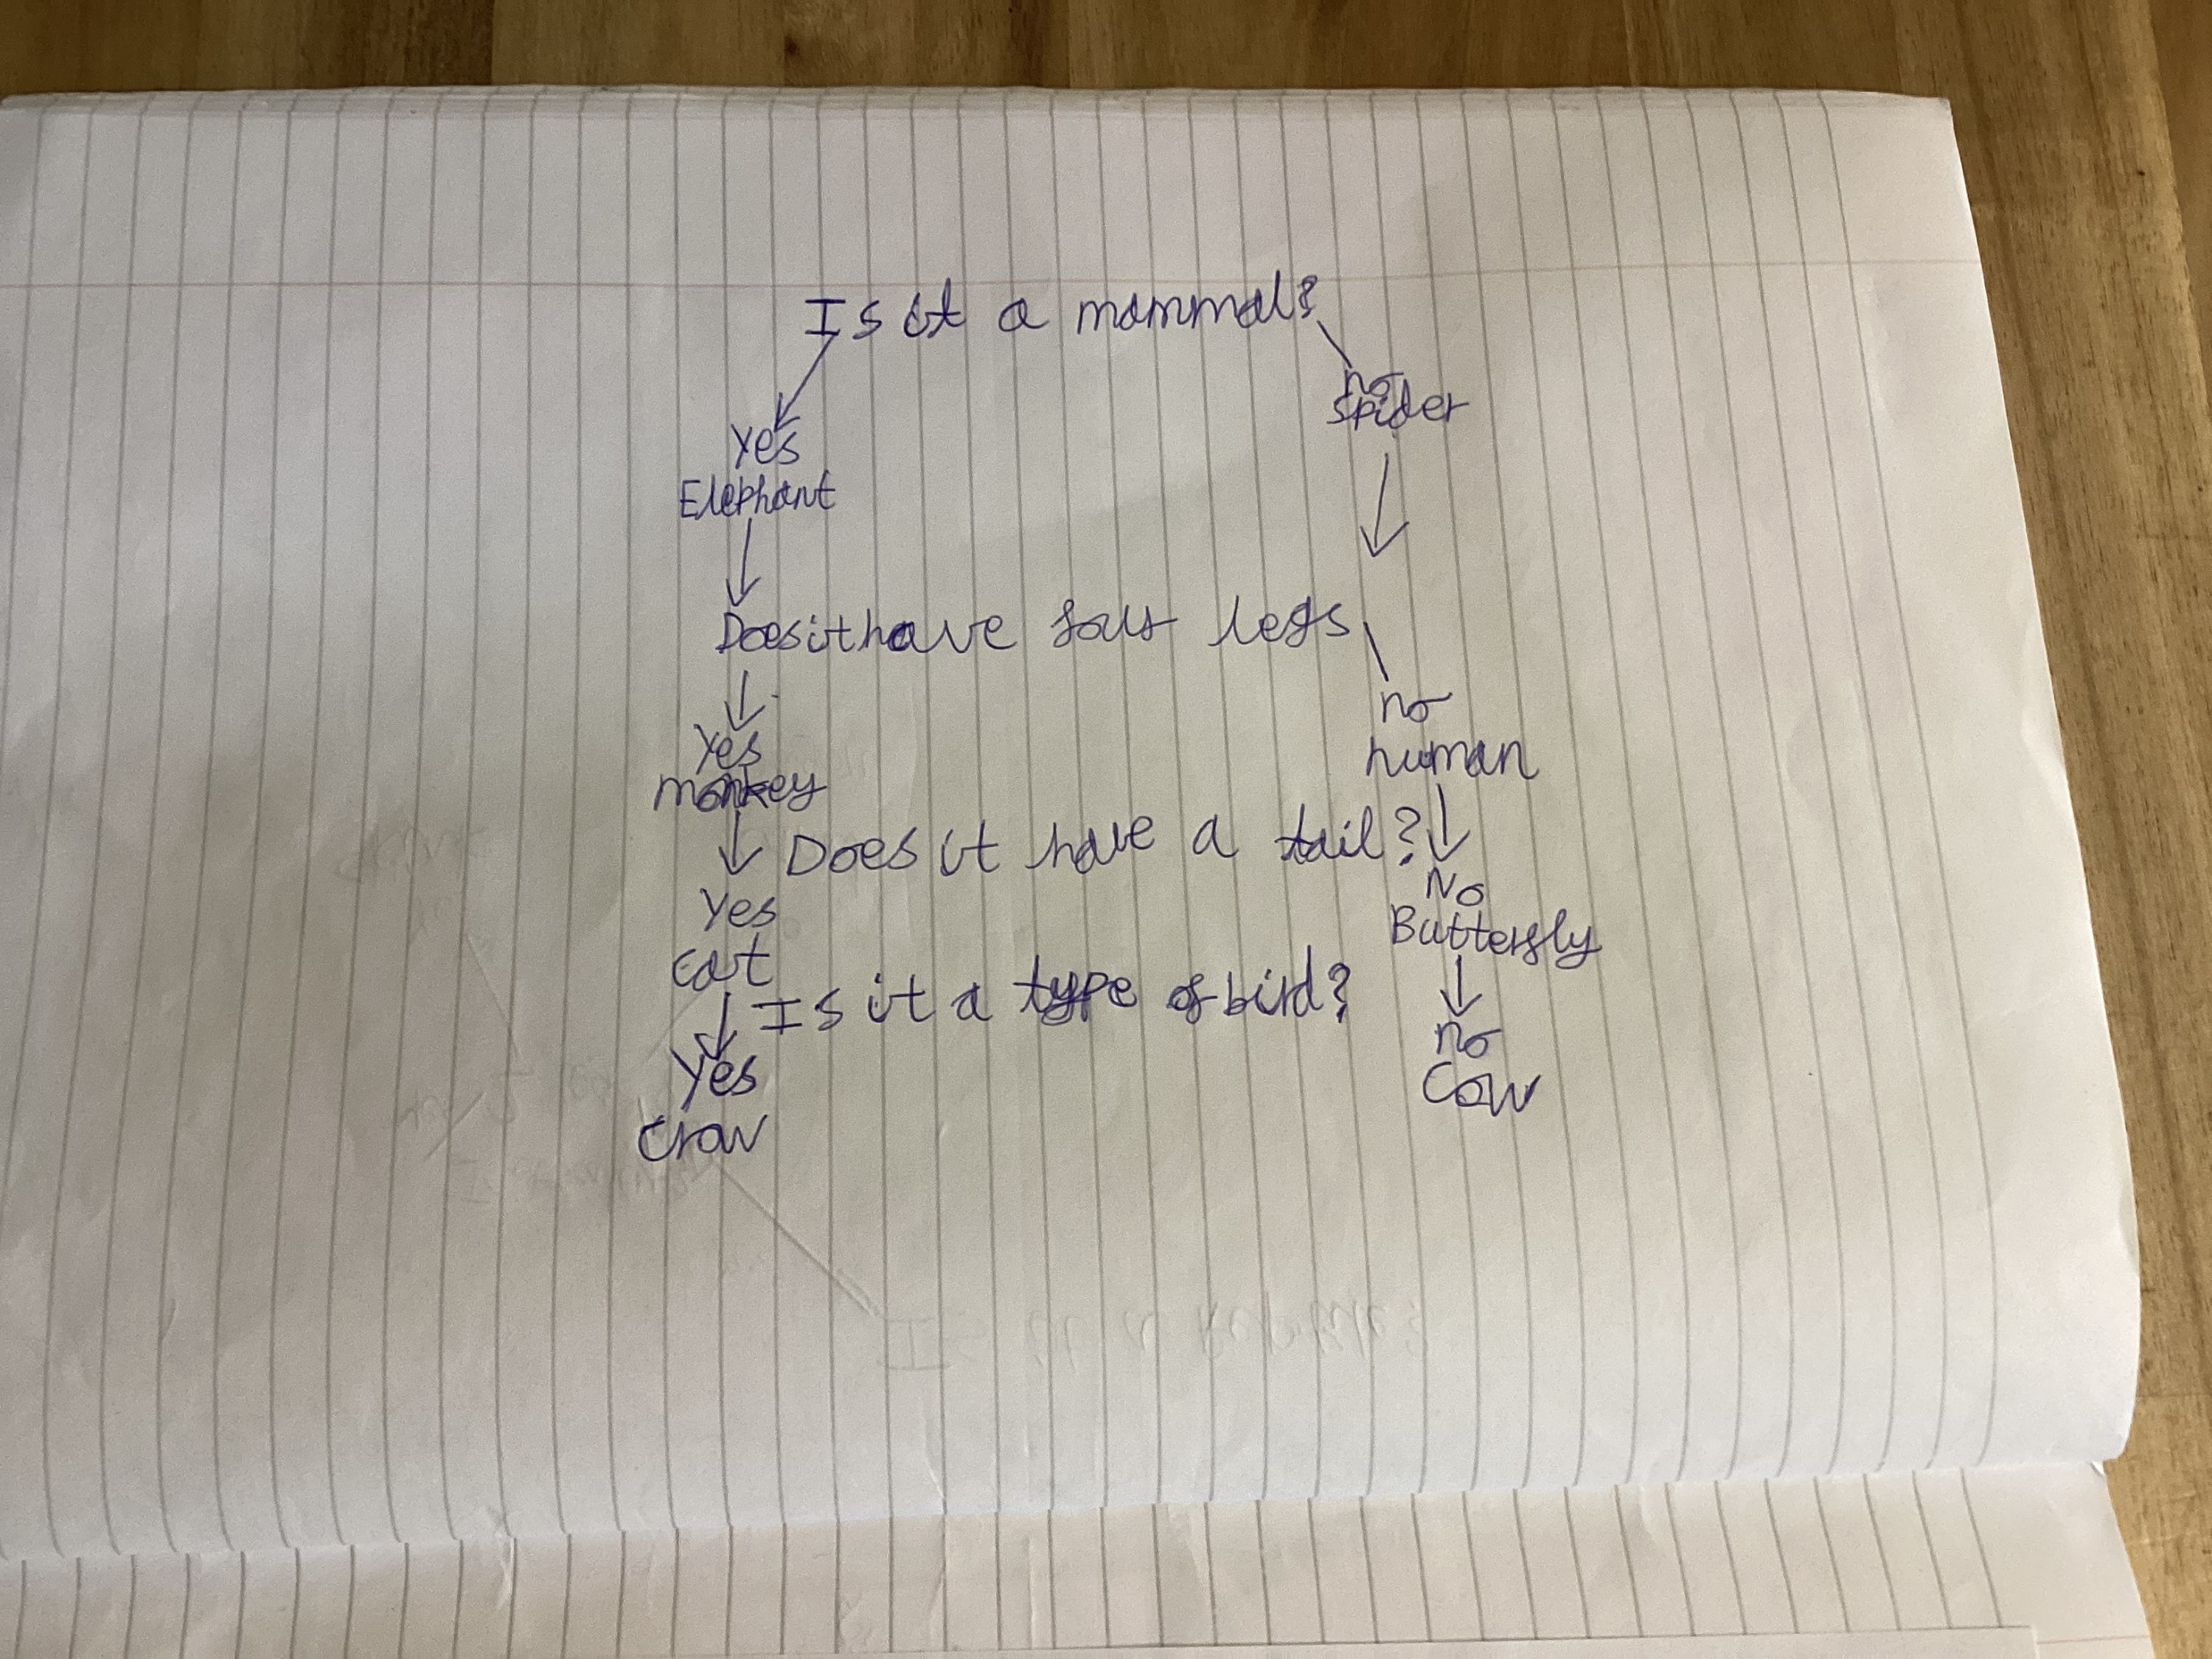 Is it a mammal?
no
Spider
Yes
Elephant
Does it have four legs
no
Yes
human
monkey
Does it have a tail?
No
Yes
Butterfly
cat
Is it a type of bird?
no
Yes
Cow
Crow